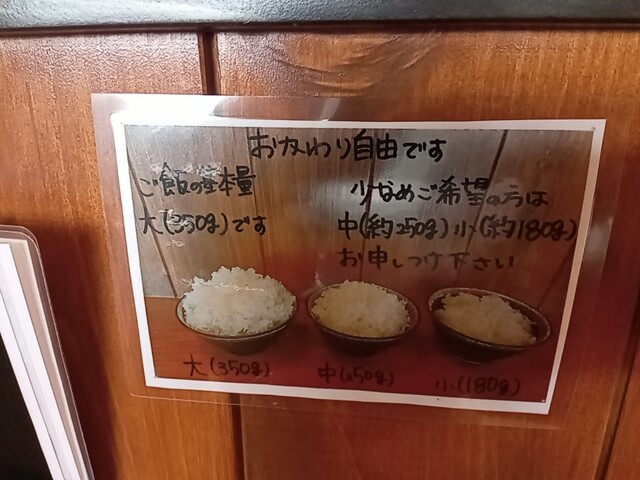 おかわり自由です
ご飯の基本量
大(350g)です
少なめご希望の方は
中(約250g)小(約180g)
お申しつけ下さい
大(350g)
中(250g)
小(180g)